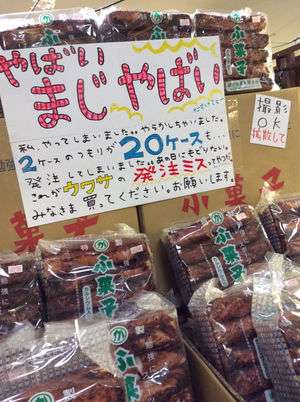 やばい
まじ やばい
私、やってしまいました。やらかしちゃいました。
2ケースのつもりが20ケースも…
発注してしまいました。あの日にもどりたい。
これがウワサの発注ミスってやつか
みなさま買ってください。お願いします。
撮影
OK
拡散して
菓子
ふ菓子
ふ菓子
ふ菓子